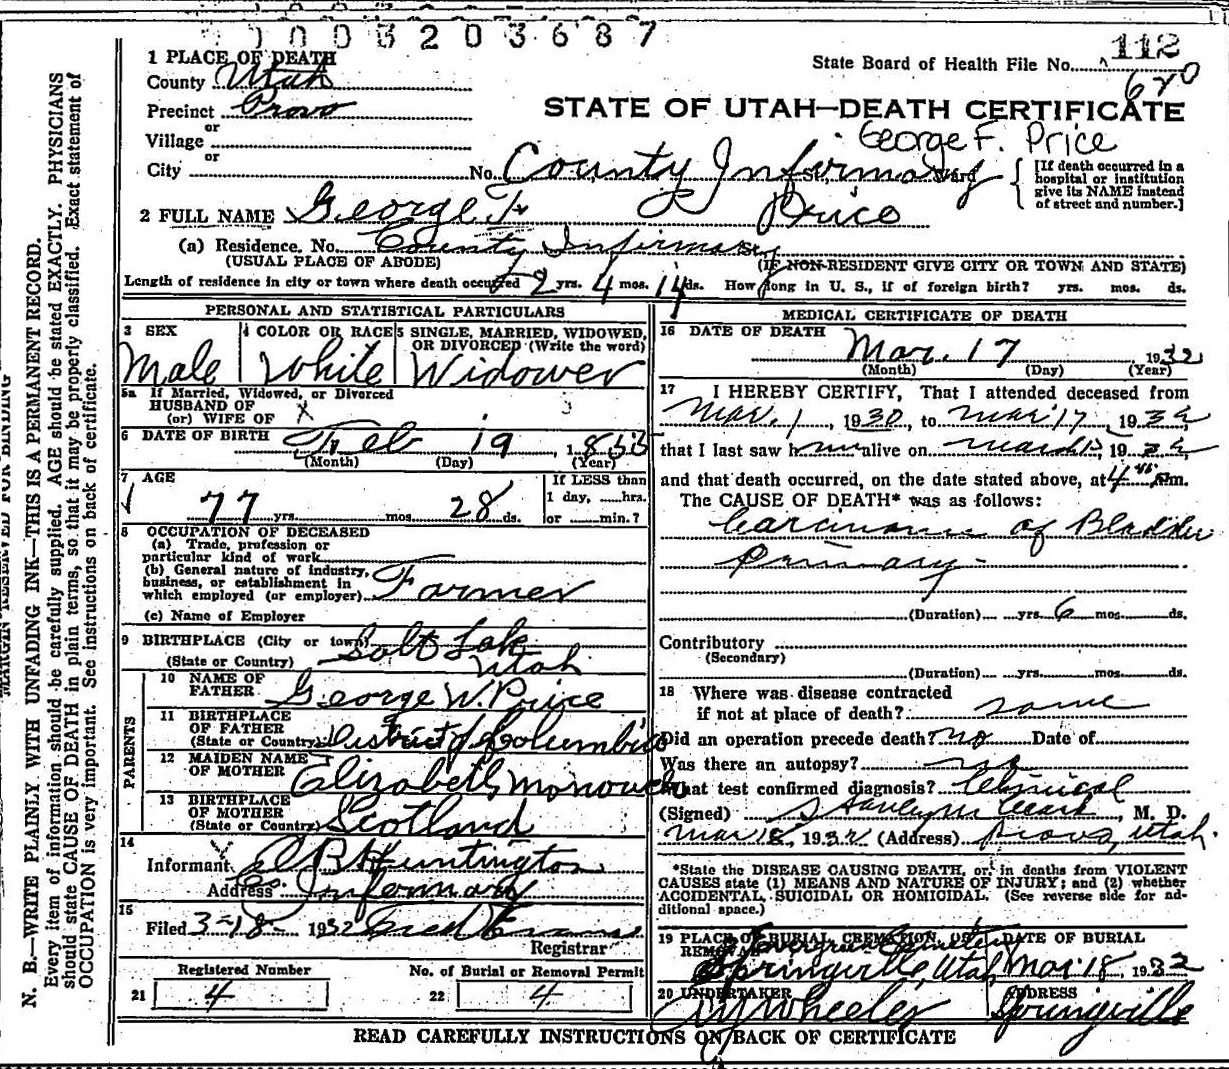 0003203687
1 PLACE OF DEATH
County Utah
Precinct Provo
or
Village
or
City
State Board of Health File No. 112
620
STATE OF UTAH—DEATH CERTIFICATE
George F. Price
No. County Infirmary
[If death occurred in a hospital or institution give its NAME instead of street and number.]
2 FULL NAME George F. Price
(a) Residence. No. County Infirmary
(USUAL PLACE OF ABODE) (IF NON-RESIDENT GIVE CITY OR TOWN AND STATE)
Length of residence in city or town where death occurred 2 yrs. 4 mos. 14 ds. How long in U. S., if of foreign birth? yrs. mos. ds.
PERSONAL AND STATISTICAL PARTICULARS
3 SEX
Male
4 COLOR OR RACE
White
5 SINGLE, MARRIED, WIDOWED, OR DIVORCED (Write the word)
Widower
5a If Married, Widowed, or Divorced
HUSBAND OF
(or) WIFE OF X
6 DATE OF BIRTH Feb 19 1855
(Month) (Day) (Year)
7 AGE
77 yrs. mos. 28 ds.
If LESS than
1 day, hrs.
or min.?
8 OCCUPATION OF DECEASED
(a) Trade, profession or
particular kind of work
(b) General nature of industry,
business, or establishment in
which employed (or employer) Farmer
(c) Name of Employer
9 BIRTHPLACE (City or town) Salt Lake
(State or Country) Utah
PARENTS
10 NAME OF
FATHER George W. Price
11 BIRTHPLACE
OF FATHER
(State or Country) District of Columbia
12 MAIDEN NAME
OF MOTHER Elizabeth
13 BIRTHPLACE
OF MOTHER
(State or Country) Scotland
14
Informant Huntington
Address Infirmary
15
Filed 3-18- 1932
Registrar
Registered Number
21 4
No. of Burial or Removal Permit
22 4
MEDICAL CERTIFICATE OF DEATH
16 DATE OF DEATH Mar. 17 1932
(Month) (Day) (Year)
17 I HEREBY CERTIFY, That I attended deceased from
Mar. 1, 1930, to Mar 17, 1932
that I last saw him alive on March 1932
and that death occurred, on the date stated above, at 4 45 m.
The CAUSE OF DEATH* was as follows:
Carcinoma of Bladder
Primary
(Duration) yrs. 6 mos. ds.
Contributory
(Secondary)
(Duration) yrs. mos. ds.
18 Where was disease contracted
if not at place of death? same
Did an operation precede death? no Date of
Was there an autopsy? no
What test confirmed diagnosis? Clinical
(Signed) M. D.
Mar 18, 1932 (Address) Provo, Utah.
*State the DISEASE CAUSING DEATH, or, in deaths from VIOLENT
CAUSES state (1) MEANS AND NATURE OF INJURY; and (2) whether
ACCIDENTAL, SUICIDAL OR HOMICIDAL. (See reverse side for ad-
ditional space.)
19 PLACE OF BURIAL, CREMATION, OR
REMOVAL Evergreen Cemetery
Springville, Utah
DATE OF BURIAL
Mar. 18, 1932
20 UNDERTAKER
Wheeler
ADDRESS
Springville
READ CAREFULLY INSTRUCTIONS ON BACK OF CERTIFICATE
MARGIN RESERVED FOR BINDING
N. B.—WRITE PLAINLY WITH UNFADING INK—THIS IS A PERMANENT RECORD.
Every item of information should be carefully supplied. AGE should be stated EXACTLY. PHYSICIANS
should state CAUSE OF DEATH in plain terms, so that it may be properly classified. Exact statement of
OCCUPATION is very important. See instructions on back of certificate.